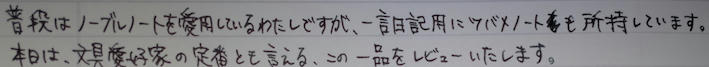 普段はノーブルノートを愛用しているわたしですが、一言日記用にツバメノートも所持しています。
本日は、文具愛好家の定番とも言える、この一品をレビューいたします。